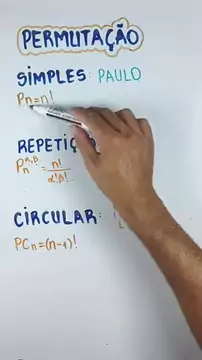 PERMUTAÇÃO
SIMPLES: PAULO
Pn=n!
Pₙ^α,β = n!/α!β!...
CIRCULAR:
PCn=(n-1)!